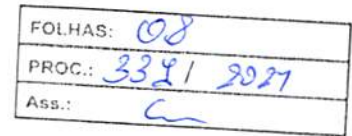 FOLHAS: 08
PROC.: 337/2021
Ass.: